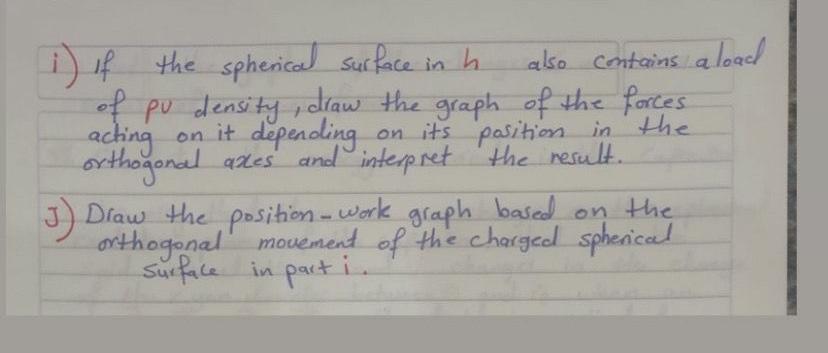 i) If the spherical surface in h also contains a load
of pv density, draw the graph of the forces
acting on it depending on its position in the
orthogonal axes and interpret the result.
J) Draw the position-work graph based on the
orthogonal movement of the charged spherical
surface in part i.